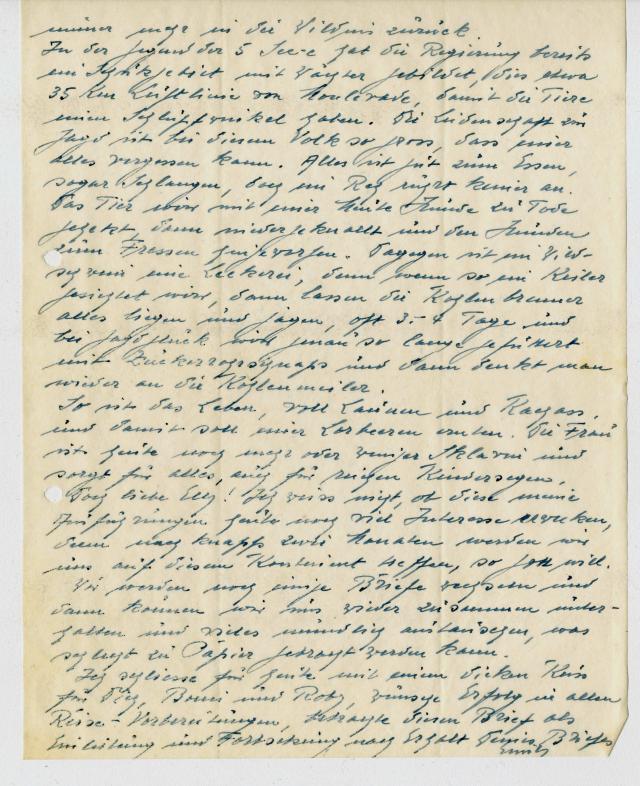 immer mehr in die Wildnis zurück.
In der Gegend der 5 See-e hat die Regierung bereits
ein Schutzgebiet mit Wächter gebildet, dies etwa
35 Km Luftlinie von Monlevade, damit die Tiere
einen Schlupfwinkel haben. Die Leidenschaft zur
Jagd ist bei diesem Volk so gross, dass einer
alles vergessen kann. Alles ist gut zum Essen,
sogar Schlangen, doch ein Reh rührt keiner an.
Das Tier wird mit einer Meute Hunde zu Tode
gehetzt, dann niedergeknallt und den Hunden
zum Fressen hingeworfen. Dagegen ist ein Wild-
schwein eine Leckerei, denn wenn so ein Keiler
gesichtet wird, dann lassen die Kohlenbrenner
alles liegen und jagen, oft 3-4 Tage und
bei Jagdglück wird genau so lange gefeiert
mit Zuckerrohrschnaps und dann denkt man
wieder an die Kohlenmeiler.
So ist das Leben, voll Launen und
und damit soll einer Lorbeeren ernten. Die Frau
ist heute noch mehr oder weniger Sklavin und
sorgt für alles, auch für reichen Kindersegen.
Doch liebe Elly! Ich weiss nicht, ob diese meine
Ausführungen heute noch viel Interesse erwecken,
denn nach knapp zwei Monaten werden wir
uns auf diesem Kontinent treffen, so Gott will.
Wir werden noch einige Briefe wechseln und
dann können wir uns wieder zusammen unter-
halten und vieles mündlich austauschen, was
schlecht zu Papier gebracht werden kann.
Ich schliesse für heute mit einem dicken Kuss
für Dich, und Roby, wünsche Erfolg in allen
Reise-Vorbereitungen, betrachte diesen Brief als
Einleitung und Fortsetzung nach Erhalt Deines Briefes